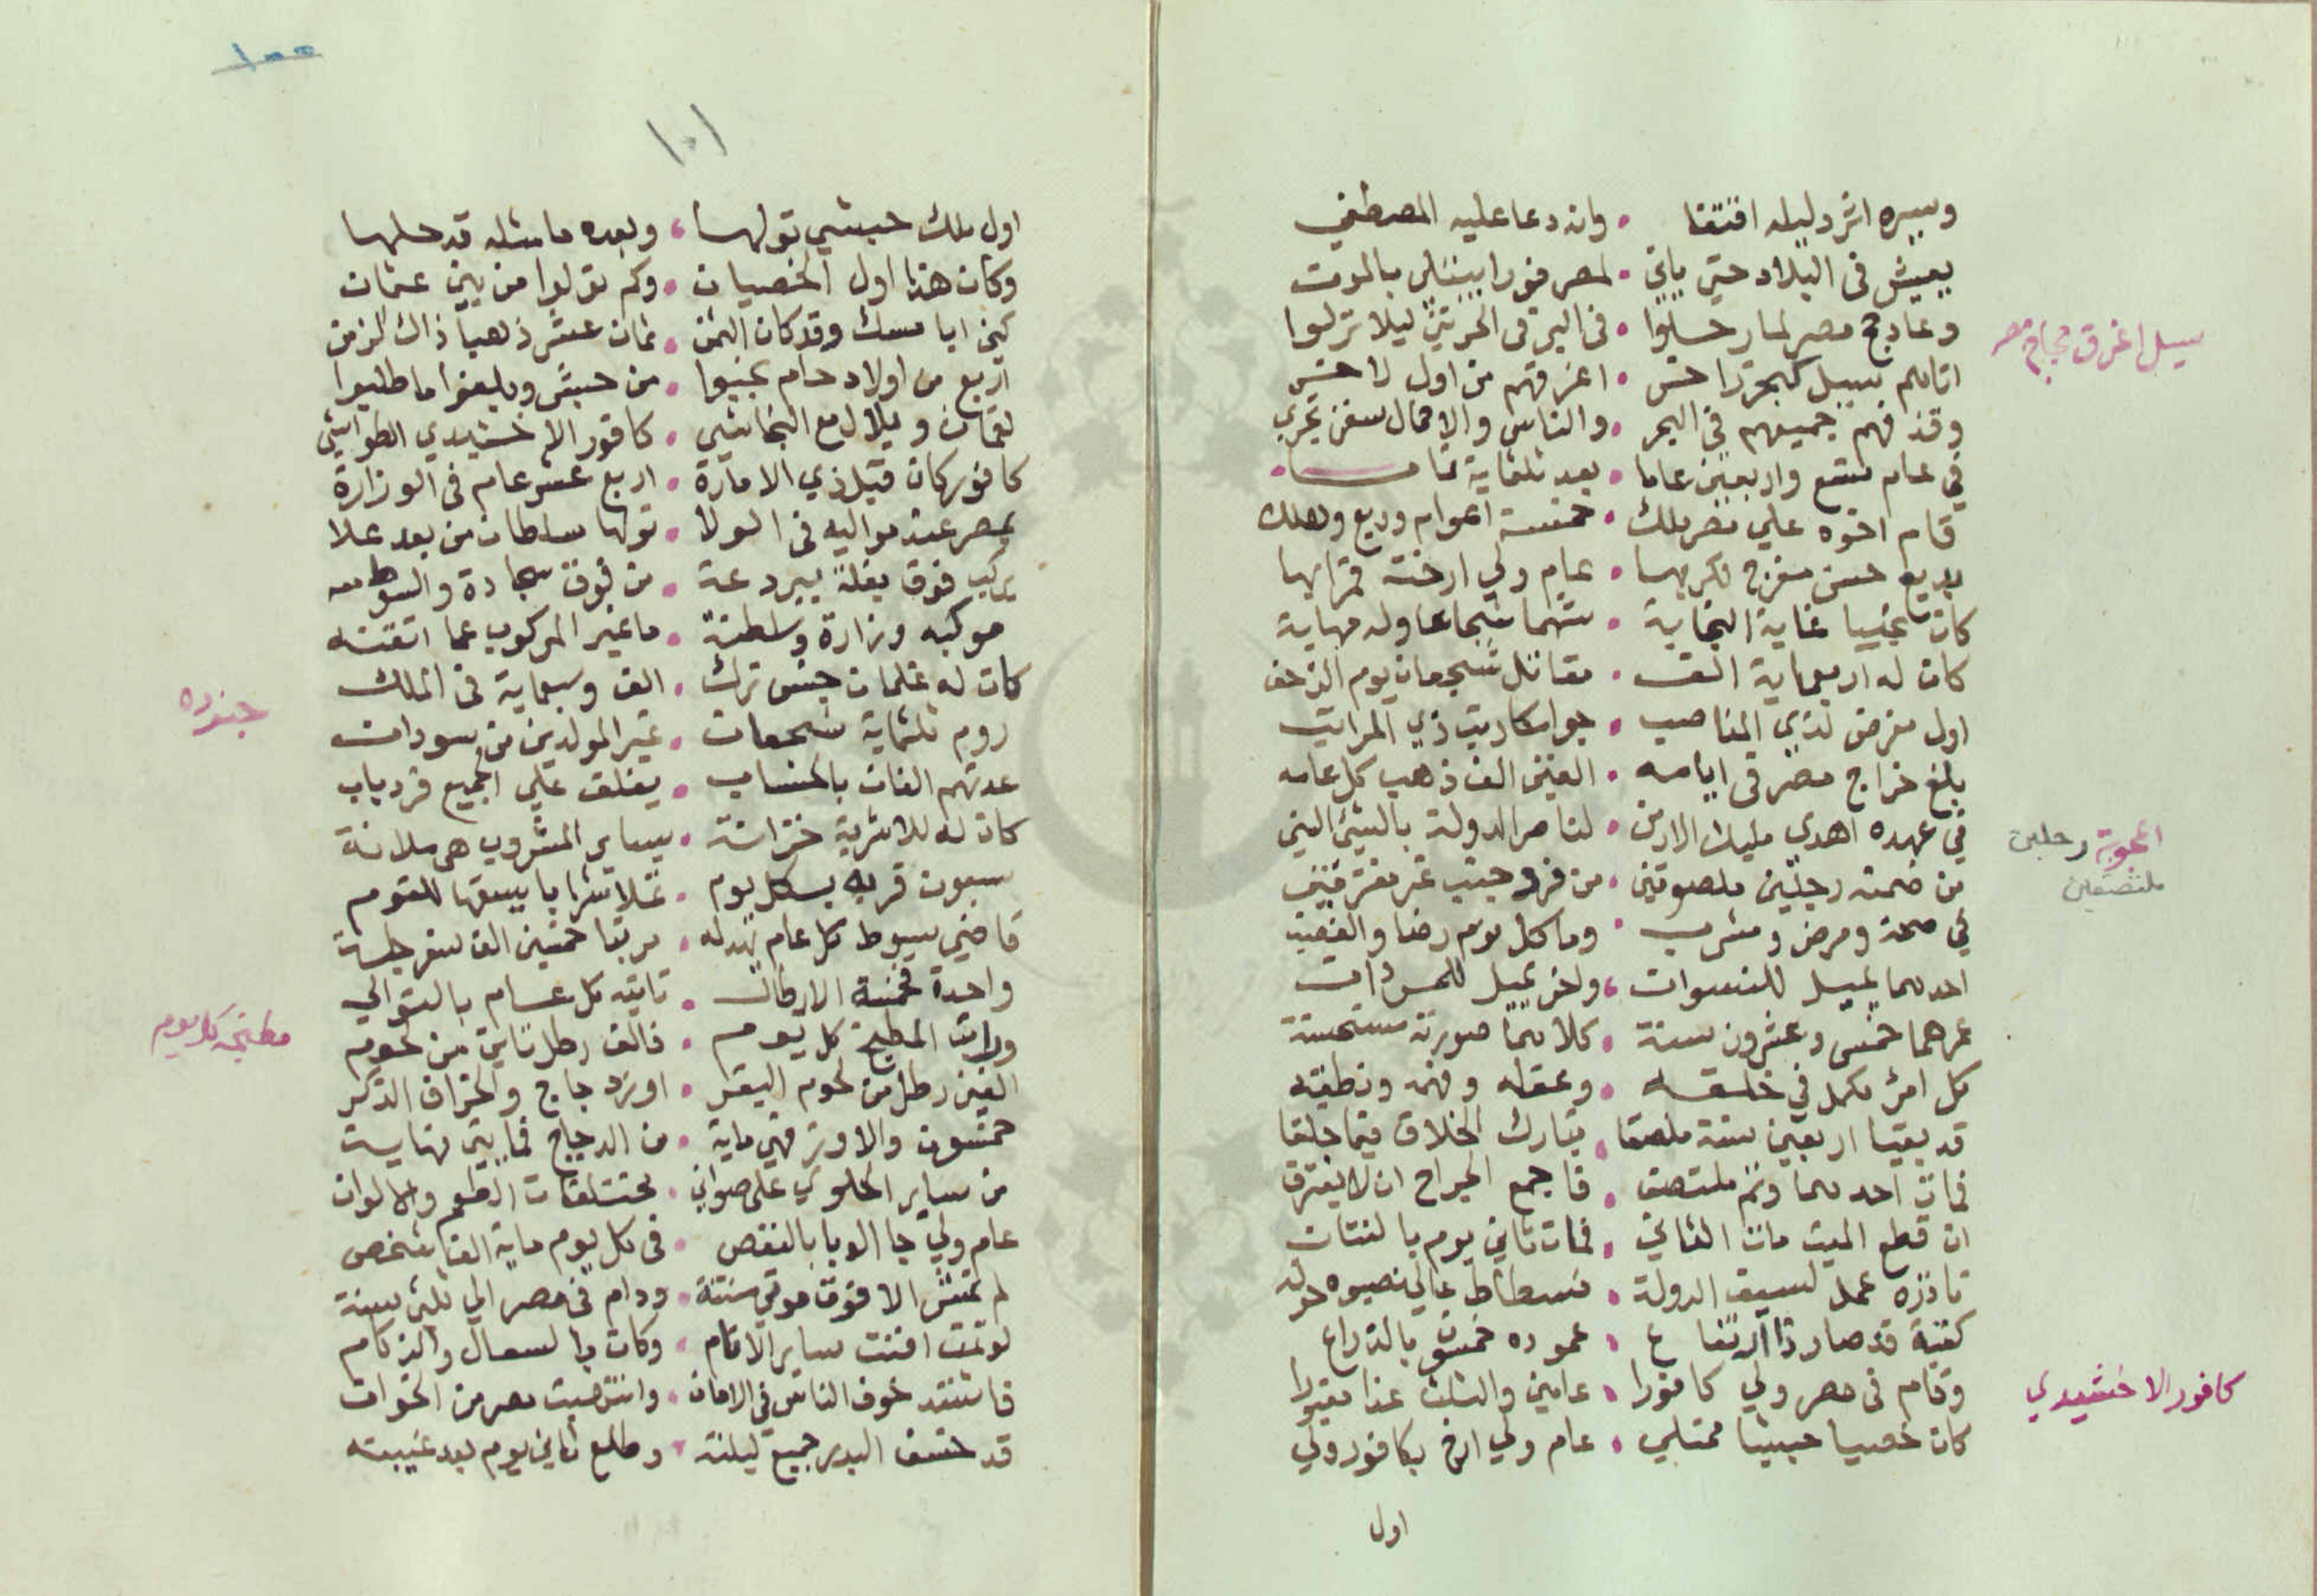 وسيره اثر دليله افتقا • وانه دعا عليه المصطفي
يعيش في البلاد حتي ياتي • لمصر فورا بالموت
وعاد حج مصر لما رحلوا • في البر في ليلا نزلوا
سيل اغرق حجاج مصر
اتاهم بسيل كبحر • اغرقهم من اول
وقذفهم جميعهم في البحر • والناس والاحمال سفن تجري
في عام تسع واربعين عاما • بعد ثلثماية تماما
قام اخوه علي مصر ملك • خمسة اعوام وربع وهلك
بديع حسن مفرج • عام ولي ارخته
كان نجيبا غاية النجابة • شهما شجاعا وله مهابة
كان له اربعماية الف • مقاتل شجعان يوم الزحف
اول مفرض لذي المناصب • ذي المراتب
بلغ خراج مصر في ايامه • الفين الف ذهب كل عامه
في عهده اهدي مليك الارمن • لناصر الدولة
اعجوبة رجلين
ملتصقين
من ضمنه رجلين ملصوقين • من فرد جنب غير مفترقين
في صحة ومرض ومشرب • وماكل نوم رضا والغضب
احدهما يميل للنسوات • واخر يميل
عمرهما خمس وعشرون سنة • كلاهما صورته مستحسنة
كل امرئ مكمل في خلقه • وعقله وفهمه ونطقه
قد بقيا اربعين سنة ملصقا • تبارك الخلاق فيما خلقا
فمات احدهما وثم ملتصق • فاجمع الجراح ان لا يفترق
ان قطع الميت مات الثاني • فمات ثاني يوم
نادره عمل لسيف الدولة • فسطاط عالي نصبوه حوله
كقبة قد صار ذا ارتفاع • عموده خمسون بالذراع
وقام في مصر ولي كافورا • عامين والثلث غدا
كافور الاخشيدي
كان خصيا حبشيا ممتلي • عام ولي ارخ بكافور ولي
اول
١٠٠
١٠١
اول ملك حبشي تولها • وبعده ما مثله قد حلها
وكان هذا اول الخصيان • وكم تولوا من بني عثمان
كني ابا مسك وقد كان الثمن • ثمان عشر ذهبا ذاك الزمن
اربع من اولاد حام نجبوا • من حبش وبلغوا ما طلبوا
لقمان وبلال مع النجاشي • كافور الاخشيدي الطواشي
كافور كان قبل ذي الامارة • اربع عشر عام في الوزارة
بمصر عند مواليه في الولا • تولها سلطان من بعد علا
يركب فوق بغلة ببردعة • من فوق سجادة
موكبه وزارة وسلطنة • ما غير المركوب عما اتقنه
كان له غلمان جنس ترك • الف وسبعماية في الملك
جنوده
روم ثلثماية شجعان • غير المولدين من سودان
عدتهم الفان بالحساب • يغلق علي الجميع فرد باب
كان له للاشربة خزانة • بساير المشروب هي ملانة
سبعون قربه بكل يوم • تملا شرابا يسقها للقوم
قاضي سيوط كل عام يهد له • مربا خمسين الف سفرجلة
واحدة خمسة الارطال • تاتيه كل عام بالتوالي
وراتب المطبخ كل يوم • فالف رطل من لحوم
مطبخه كل يوم
الفين رطل من لحوم البقر • اوز دجاج والخراف الذكر
خمسون والاوز فهي ماية • من الدجاج
من ساير الحلوي علي صواني • بمختلفات الطعم والالوان
عام ولي جا الوبا بالنقص • في كل يوم ماية الف شخص
لم تمش الا فوق موتي منتنة • ودام في مصر الي ثلثي سنة
لو تمت افنت ساير الانام • وكان بالسعال والزكام
فاشتد خوف الناس في الامان • وانتهبت مصر من الخوان
قد خسف البدر جميع ليلته • وطلع ثاني يوم بعد غيبته